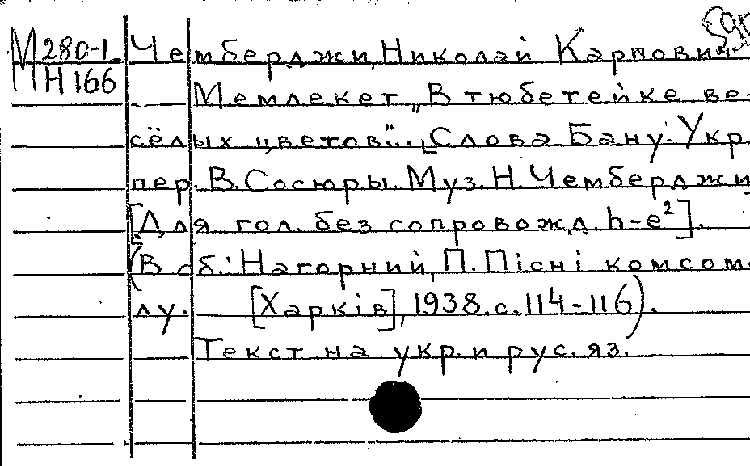 М 280-1
Н 166
Чемберджи, Николай Карпович
Мемлекет. „В тюбетейке ве-
сёлых цветов". [Слова Бану. Укр.
пер. В. Сосюры. Муз. Н. Чемберджи]
[Для гол. без сопровожд. h-e²].
(В сб.: Нагорний, П. Пісні комсомо-
лу. [Харків], 1938. с. 114-116).
Текст на укр. и рус. яз.